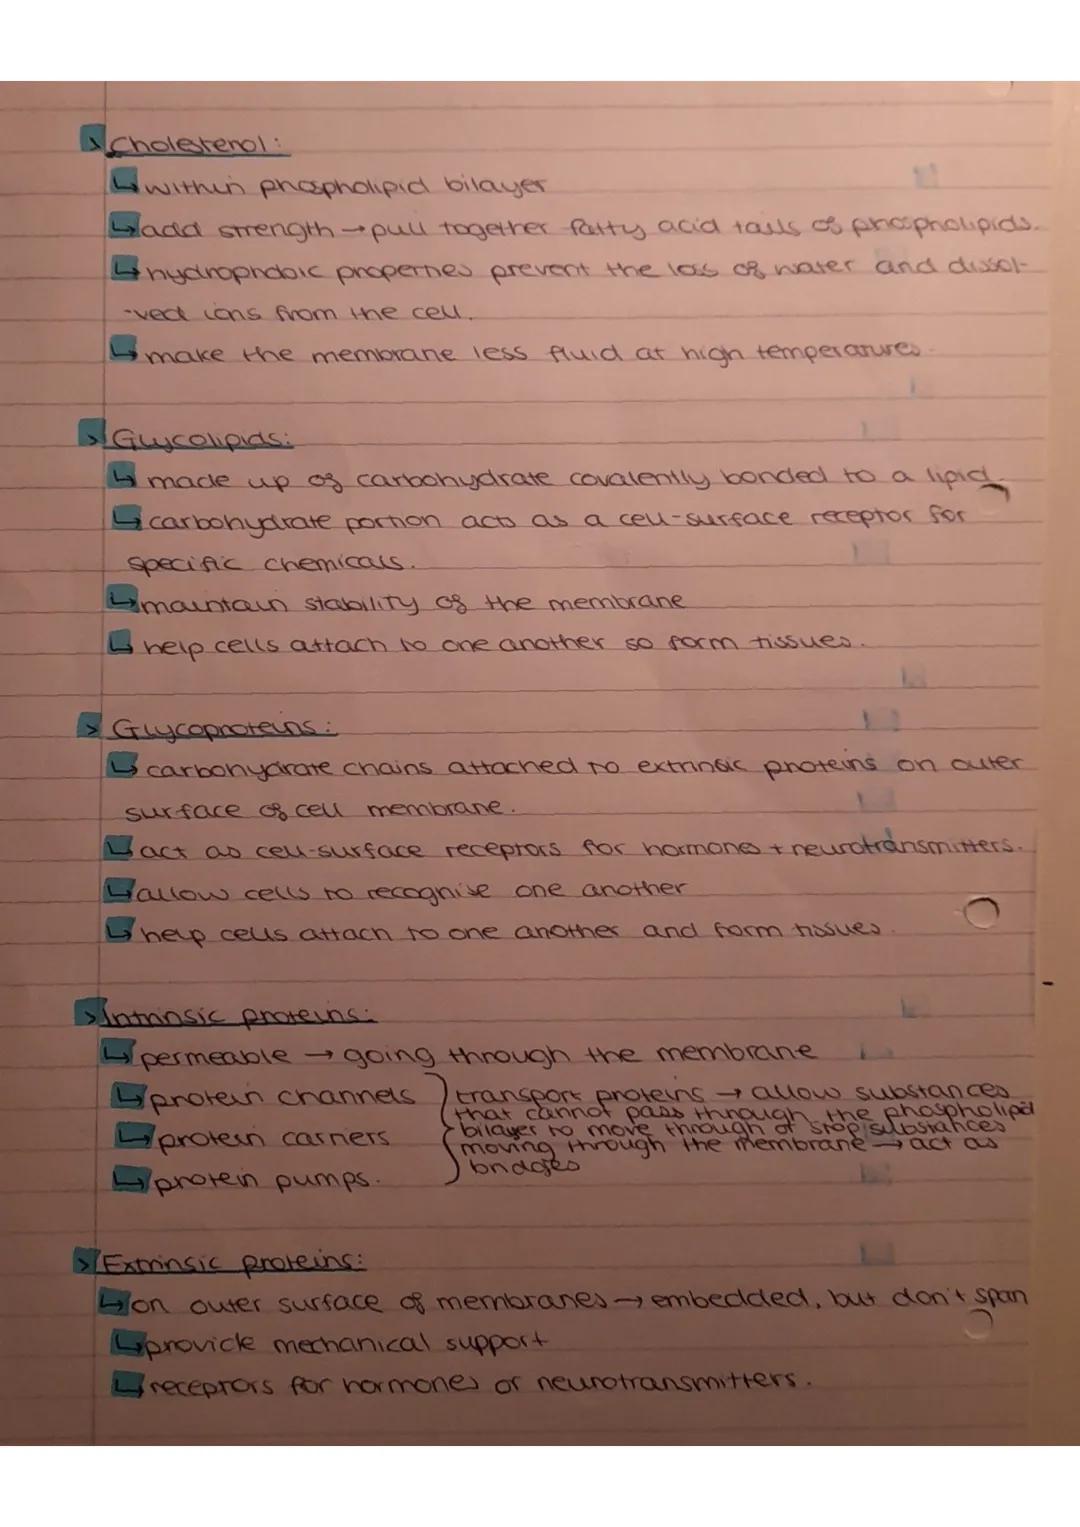 > Cholesterol:
↳ within phospholipid bilayer
↳ add strength → pull together fatty acid tails of phospholipids.
↳ hydrophobic properties prevent the loss of water and dissol-
-ved ions from the cell.
↳ make the membrane less fluid at high temperatures.
> Glycolipids:
↳ made up of carbohydrate covalently bonded to a lipid.
↳ carbohydrate portion acts as a cell-surface receptor for
specific chemicals.
↳ maintain stability of the membrane
↳ help cells attach to one another so form tissues.
> Glycoproteins:
↳ carbohydrate chains attached to extrinsic proteins on outer
surface of cell membrane.
↳ act as cell-surface receptors for hormones + neurotransmitters.
↳ allow cells to recognise one another
↳ help cells attach to one another and form tissues.
> Intrinsic proteins:
↳ permeable → going through the membrane
↳ protein channels
↳ protein carriers
↳ protein pumps.
transport proteins → allow substances
that cannot pass through the phospholipid
bilayer to move through or stop substances
moving through the membrane → act as
bridges
> Extrinsic proteins:
↳ on outer surface of membranes → embedded, but don't span
↳ provide mechanical support
↳ receptors for hormones or neurotransmitters.